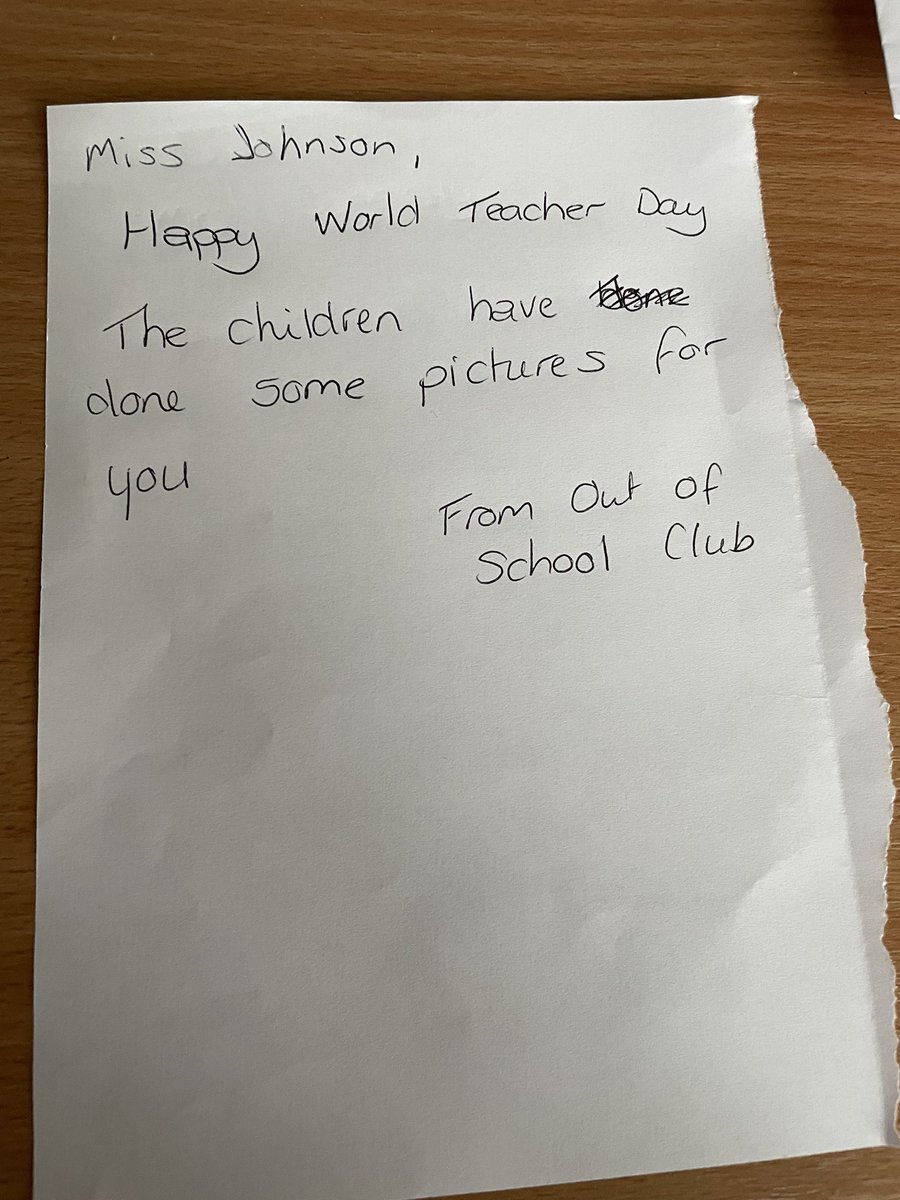 Miss Johnson,
Happy World Teacher Day
The children have
done some pictures for
you
From Out of
School Club